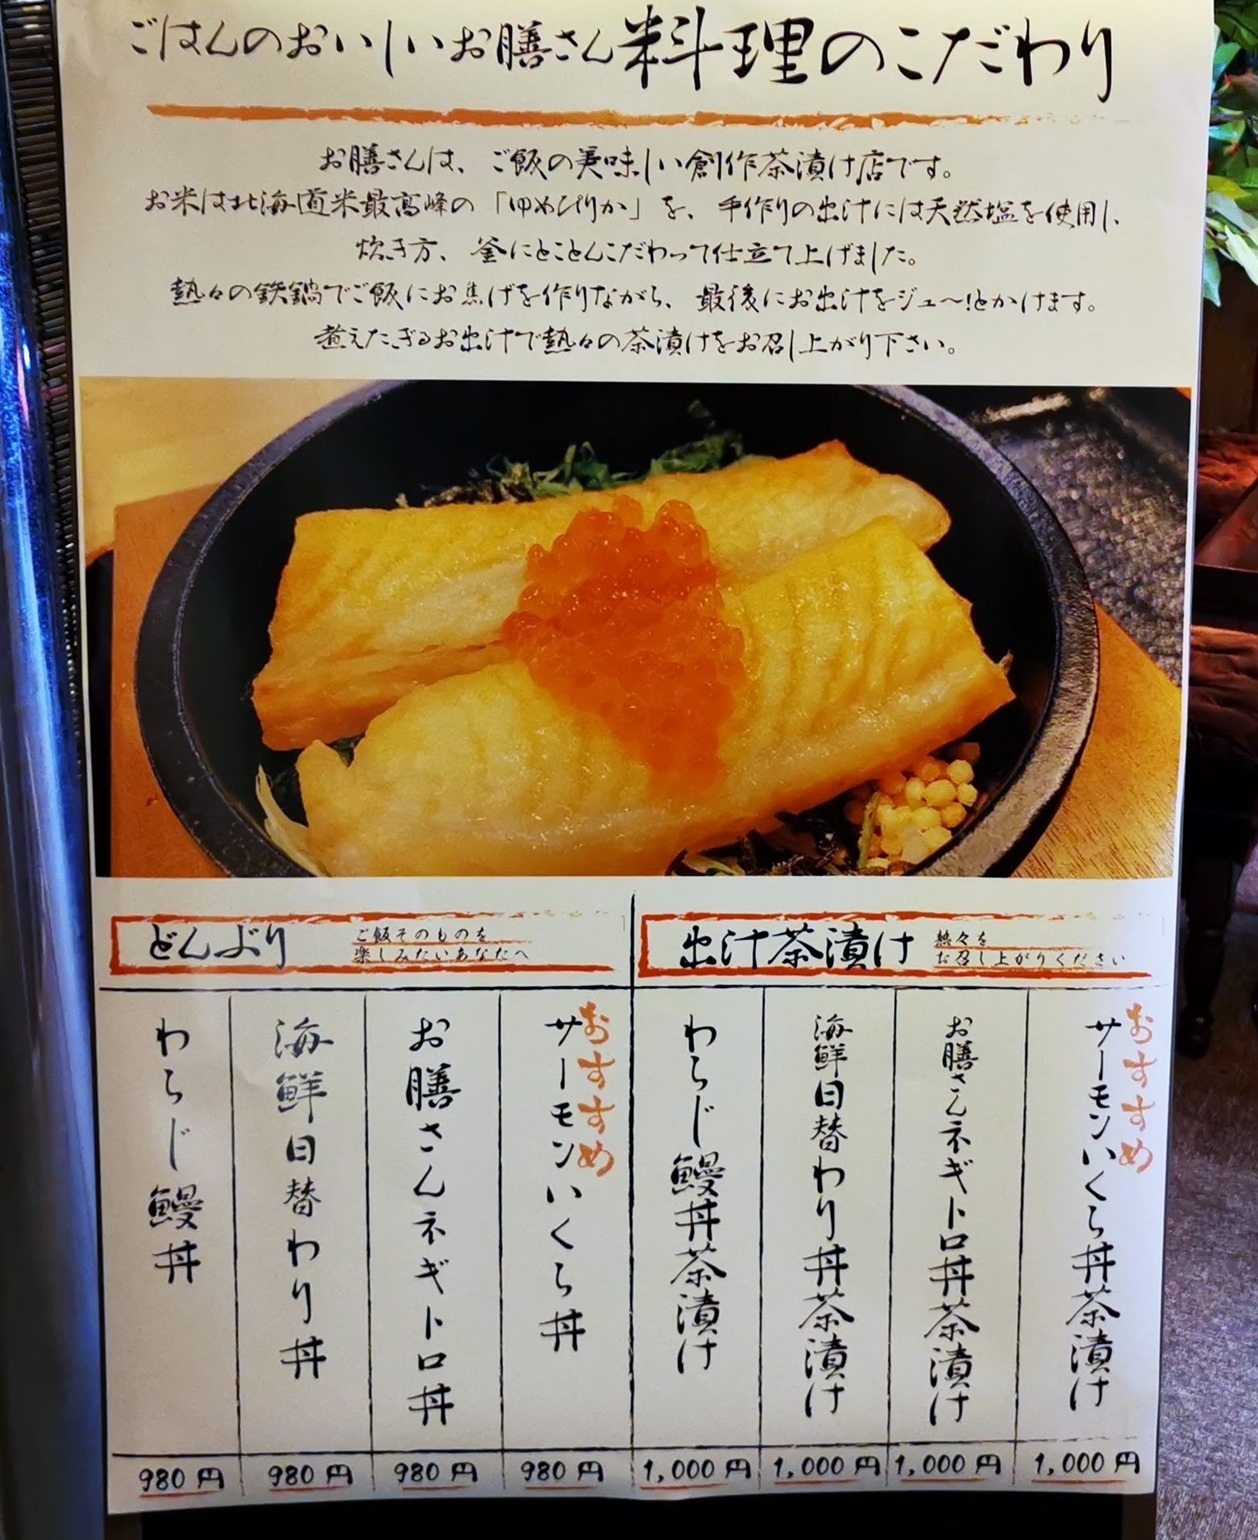 ごはんのおいしいお膳さん料理のこだわり
お膳さんは、ご飯の美味しい創作茶漬け店です。
お米は北海道米最高峰の「ゆめぴりか」を、手作りの出汁には天然塩を使用し、
炊き方、釜にとことんこだわって仕立て上げました。
熱々の鉄鍋でご飯にお焦げを作りながら、最後にお出汁をジュ〜!とかけます。
煮えたぎるお出汁で熱々の茶漬けをお召し上がり下さい。
出汁茶漬け
熱々を
お召し上がりください
おすすめ
サーモンいくら丼茶漬け
1,000円
お膳さんネギトロ丼茶漬け
1,000円
海鮮日替わり丼茶漬け
1,000円
わらじ鰻丼茶漬け
1,000円
どんぶり
ご飯そのものを
楽しみたいあなたへ
おすすめ
サーモンいくら丼
980円
お膳さんネギトロ丼
980円
海鮮日替わり丼
980円
わらじ鰻丼
980円